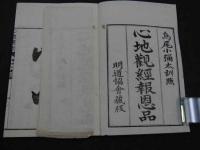 鳥尾小彌太訓點
心地觀經報恩品
明道協會藏版